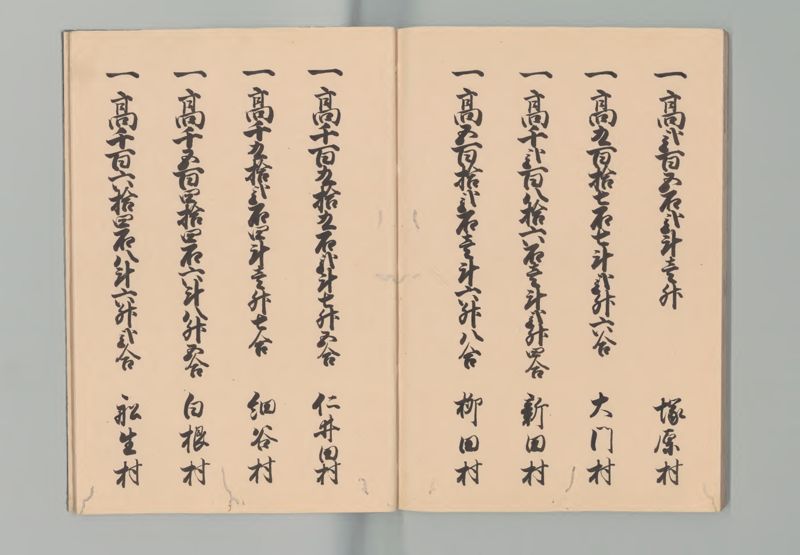 一 高弐百五石弐斗壱升 塚原村
一 高五百拾七石七斗弐升六合 大門村
一 高千弐百八拾六石壱斗弐升四合 新田村
一 高五百拾弐石壱斗六升八合 柳田村
一 高千百五拾五石弐斗七升五合 仁井田村
一 高千五拾弐石四斗壱升七合 細谷村
一 高千五百四拾四石六斗八升五合 白根村
一 高千百六拾四石八斗六升弐合 船生村